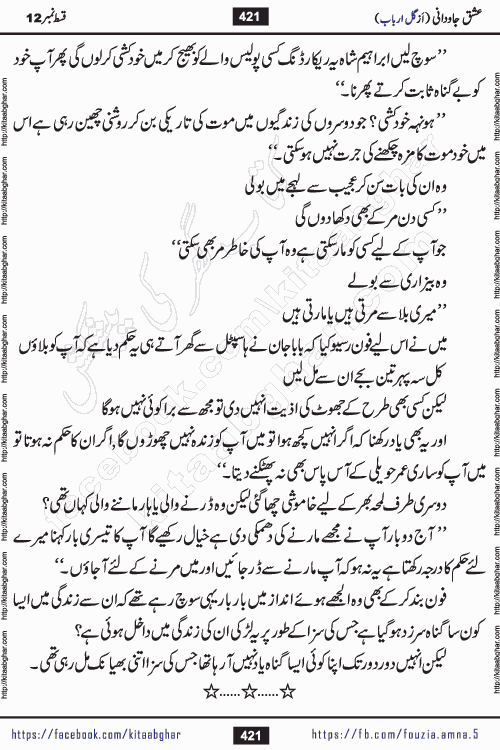 عشق جاودانی (از گل ارباب)
421
قسط نمبر 12
’’سوچ لیں ابراہیم شاہ یہ ریکارڈنگ کسی پولیس والے کو بھیج کر میں خودکشی کر لوں گی پھر آپ خود
کو بے گناہ ثابت کرتے پھرنا۔‘‘
’’ہونہہ خودکشی؟ جو دوسروں کی زندگیوں میں موت کی تاریکی بن کر روشنی چھین رہی ہے اس
میں خود موت کا مزہ چکھنے کی جرت نہیں ہو سکتی۔‘‘
وہ ان کی بات سن کر عجیب سے لہجے میں بولی
’’کسی دن مر کے بھی دکھا دوں گی
جو آپ کے لیے کسی کو مار سکتی ہے وہ آپ کی خاطر مر بھی سکتی‘‘
وہ بیزاری سے بولے
’’میری بلا سے مرتی ہیں یا مارتی ہیں
میں نے اس لیے فون رسیو کیا کہ بابا جان نے ہاسپٹل سے گھر آتے ہی یہ حکم دیا ہے کہ آپ کو بلاؤں
کل سہ پہر تین بجے ان سے مل لیں
لیکن کسی بھی طرح کے جھوٹ کی اذیت انہیں دی تو مجھ سے برا کوئی نہیں ہوگا
اور یہ بھی یاد رکھنا کہ اگر انہیں کچھ ہوا تو میں آپ کو زندہ نہیں چھوڑوں گا, اگر ان کا حکم نہ ہوتا تو
میں آپ کو ساری عمر حویلی کے آس پاس بھی نہ پھٹکنے دیتا۔‘‘
دوسری طرف لمحہ بھر کے لیے خاموشی چھا گئی لیکن وہ ڈرنے والی یا ہار ماننے والی کہاں تھی؟
’’آج دو بار آپ نے مجھے مارنے کی دھمکی دی ہے خیال رکھیے گا آپ کا تیسری بار کہنا میرے
لئے حکم کا درجہ رکھتا ہے یہ نہ ہو کہ آپ مارنے سے ڈر جائیں اور میں مرنے کے لئے آ جاؤں۔‘‘
فون بند کر کے بھی وہ الجھے ہوئے انداز میں بار بار یہی سوچ رہے تھے کہ ان سے زندگی میں ایسا
کون سا گناہ سرزد ہو گیا ہے جس کی سزا کے طور پر یہ لڑکی ان کی زندگی میں داخل ہوئی ہے؟
لیکن انہیں دور دور تک اپنا کوئی ایسا گناہ یاد نہیں آ رہا تھا جس کی سزا اتنی بھیانک مل رہی تھی۔
☆......☆......☆
https://facebook.com/kitaabghar
421
https://fb.com/fouzia.amna.5
http://kitaabghar.com
کتاب گھر کی پیشکش
facebook.com/kitaabghar
kitaabghar.com